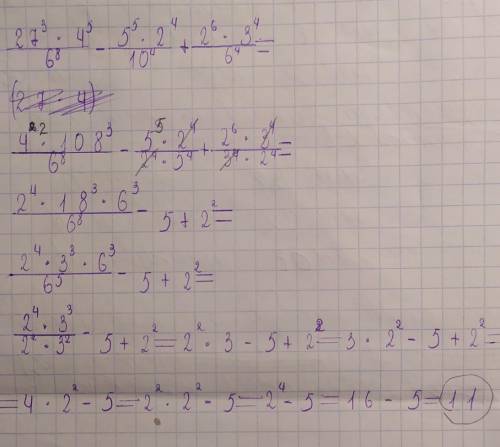 27³ · 4⁵ / 6⁸ − 5⁵ · 2⁴ / 10⁴ + 2⁶ · 3⁴ / 6⁴ =
(27 · 4)
4² · 108³ / 6⁸ − 5⁵ · 2⁴ / 2⁴ · 5⁴ + 2⁶ · 3⁴ / 3⁴ · 2⁴ =
2⁴ · 18³ · 6³ / 6⁸ − 5 + 2² =
2⁴ · 3³ · 6³ / 6⁵ − 5 + 2² =
2⁴ · 3³ / 2² · 3² − 5 + 2² = 2² · 3 − 5 + 2² = 3 · 2² − 5 + 2² =
= 4 · 2² − 5 = 2² · 2² − 5 = 2⁴ − 5 = 16 − 5 = 11